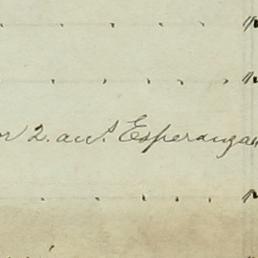 " 
"
or 2. aus. Esperanza "
"